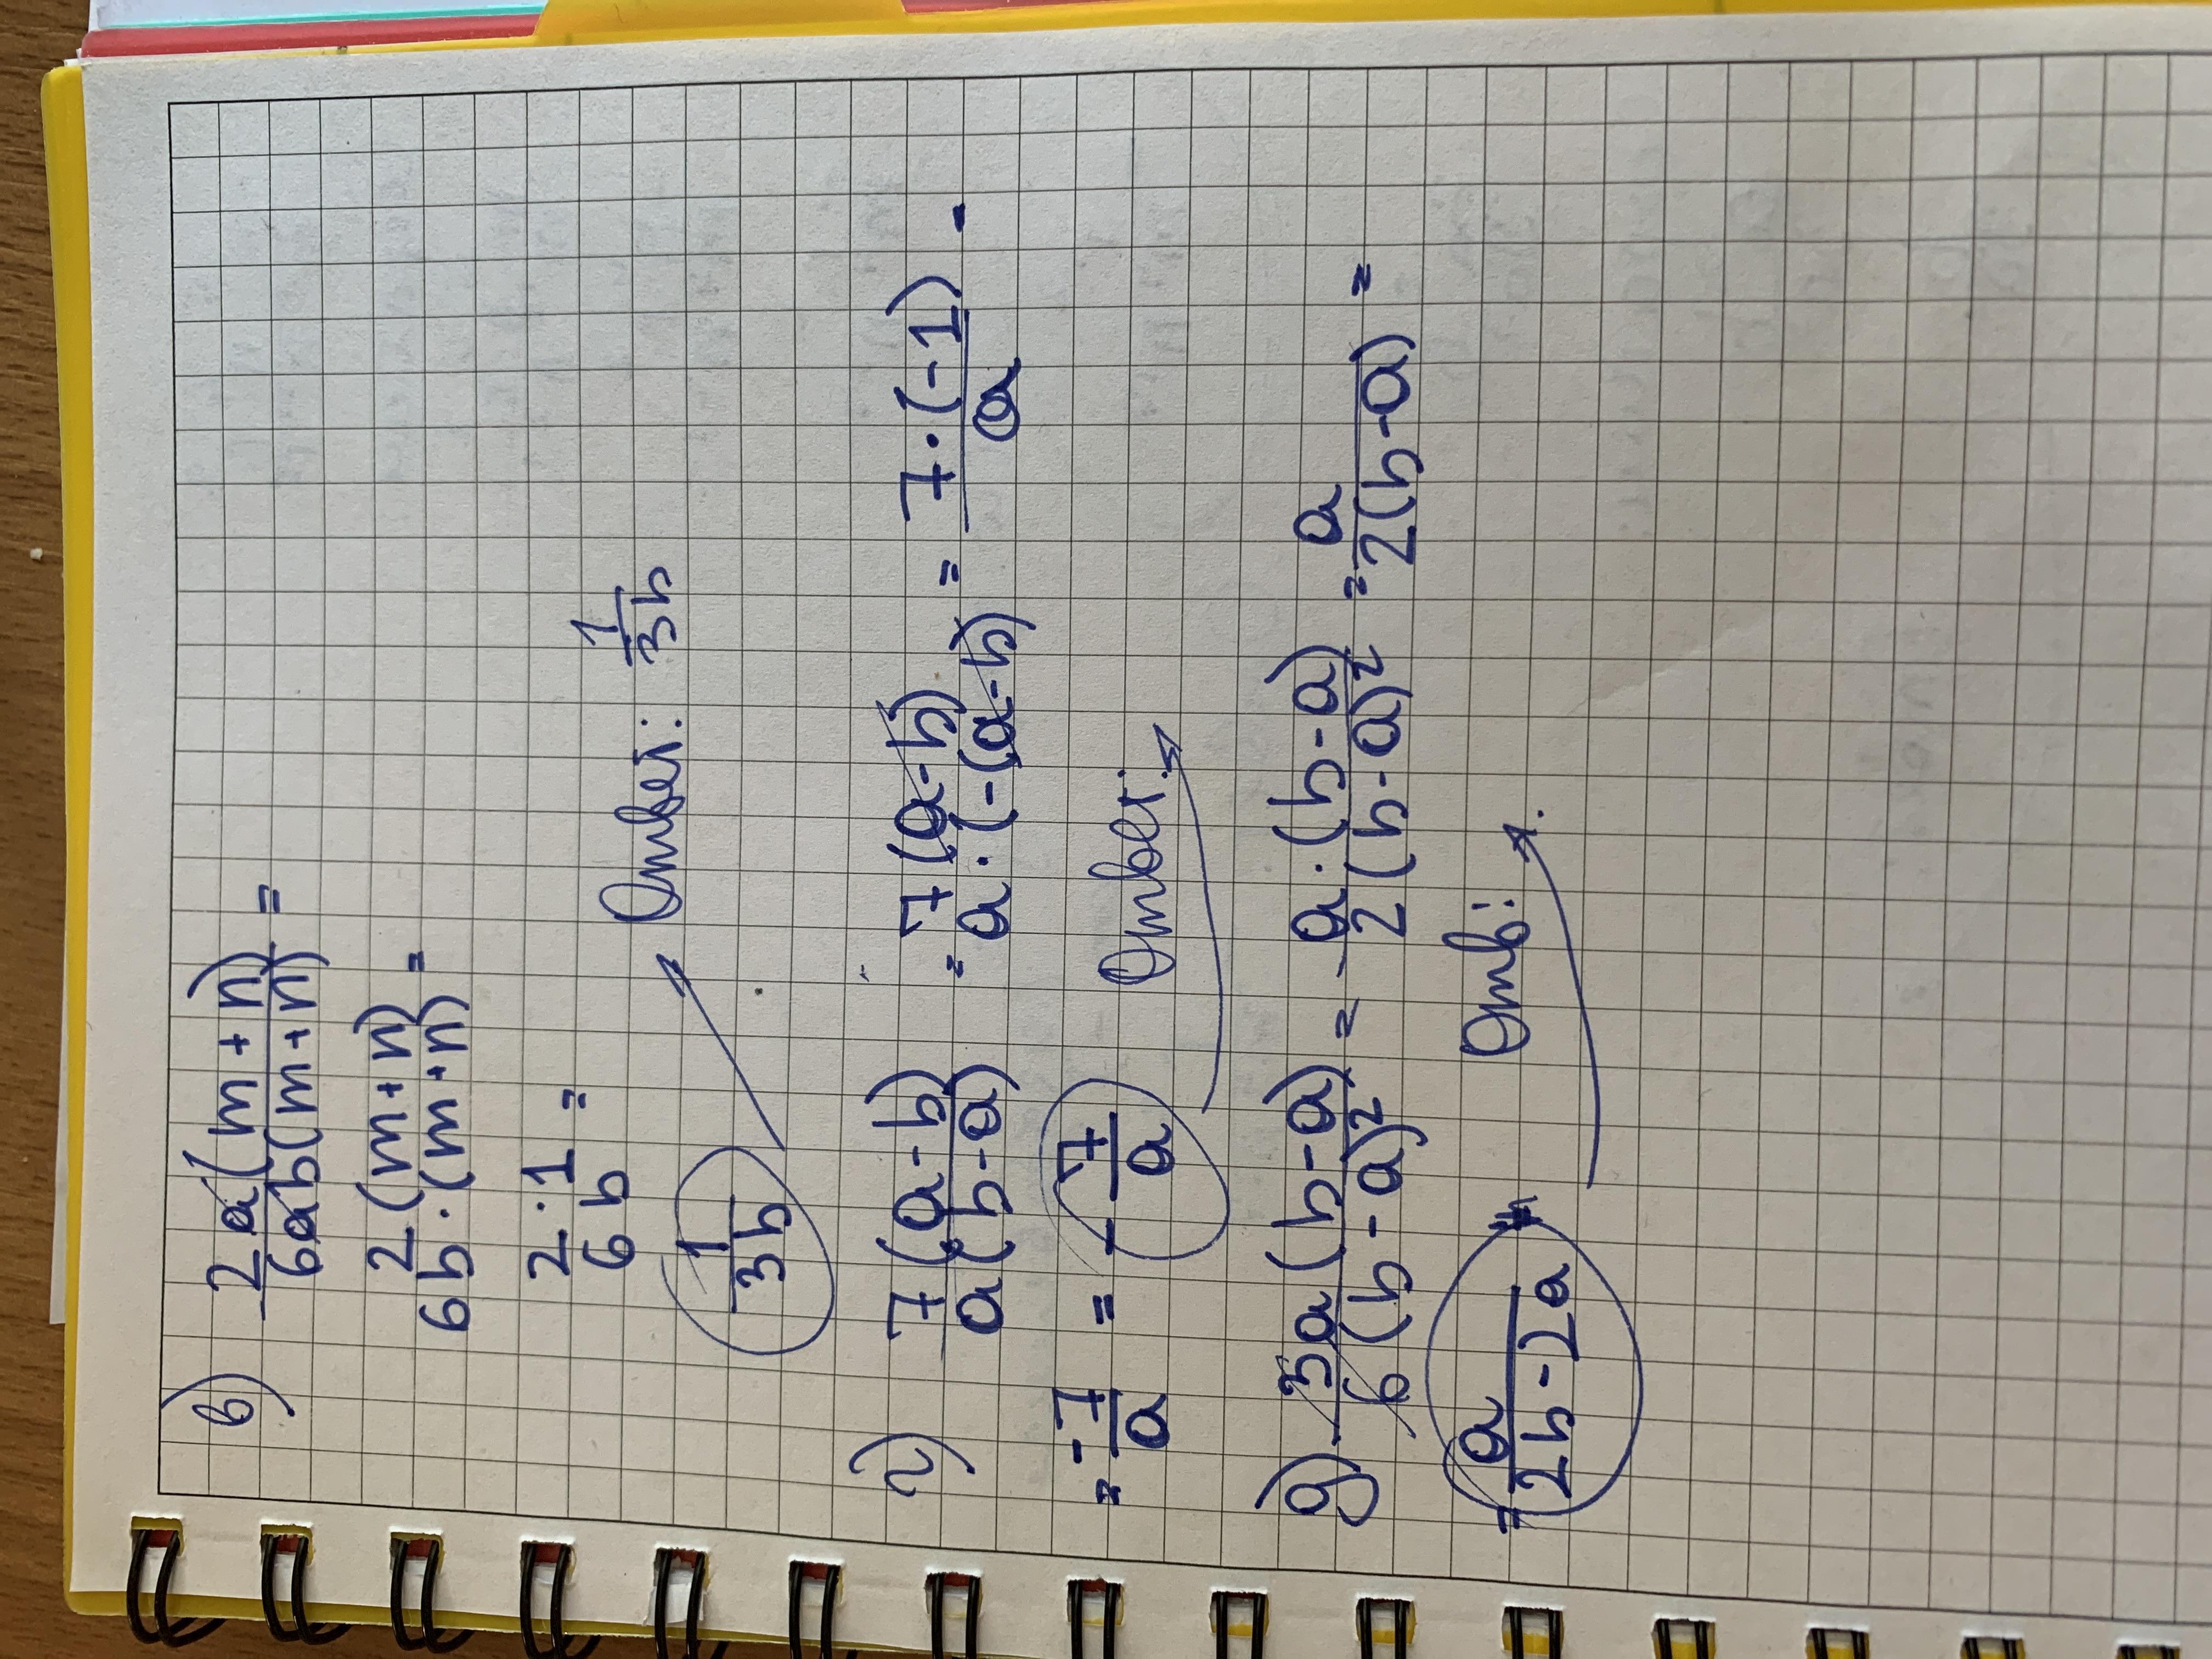 в) 2a(m+n)/6ab(m+n) =
2(m+n)/6b·(m+n) =
2·1/6b =
1/3b Ответ: 1/3b
г) 7(a-b)/a(b-a) = 7(a-b)/a·(-(a-b)) = 7·(-1)/a =
= -7/a = -7/a Ответ:
д) 3a(b-a)/6(b-a)² = a·(b-a)/2(b-a)² = a/2(b-a) =
= a/2b-2a Отв: